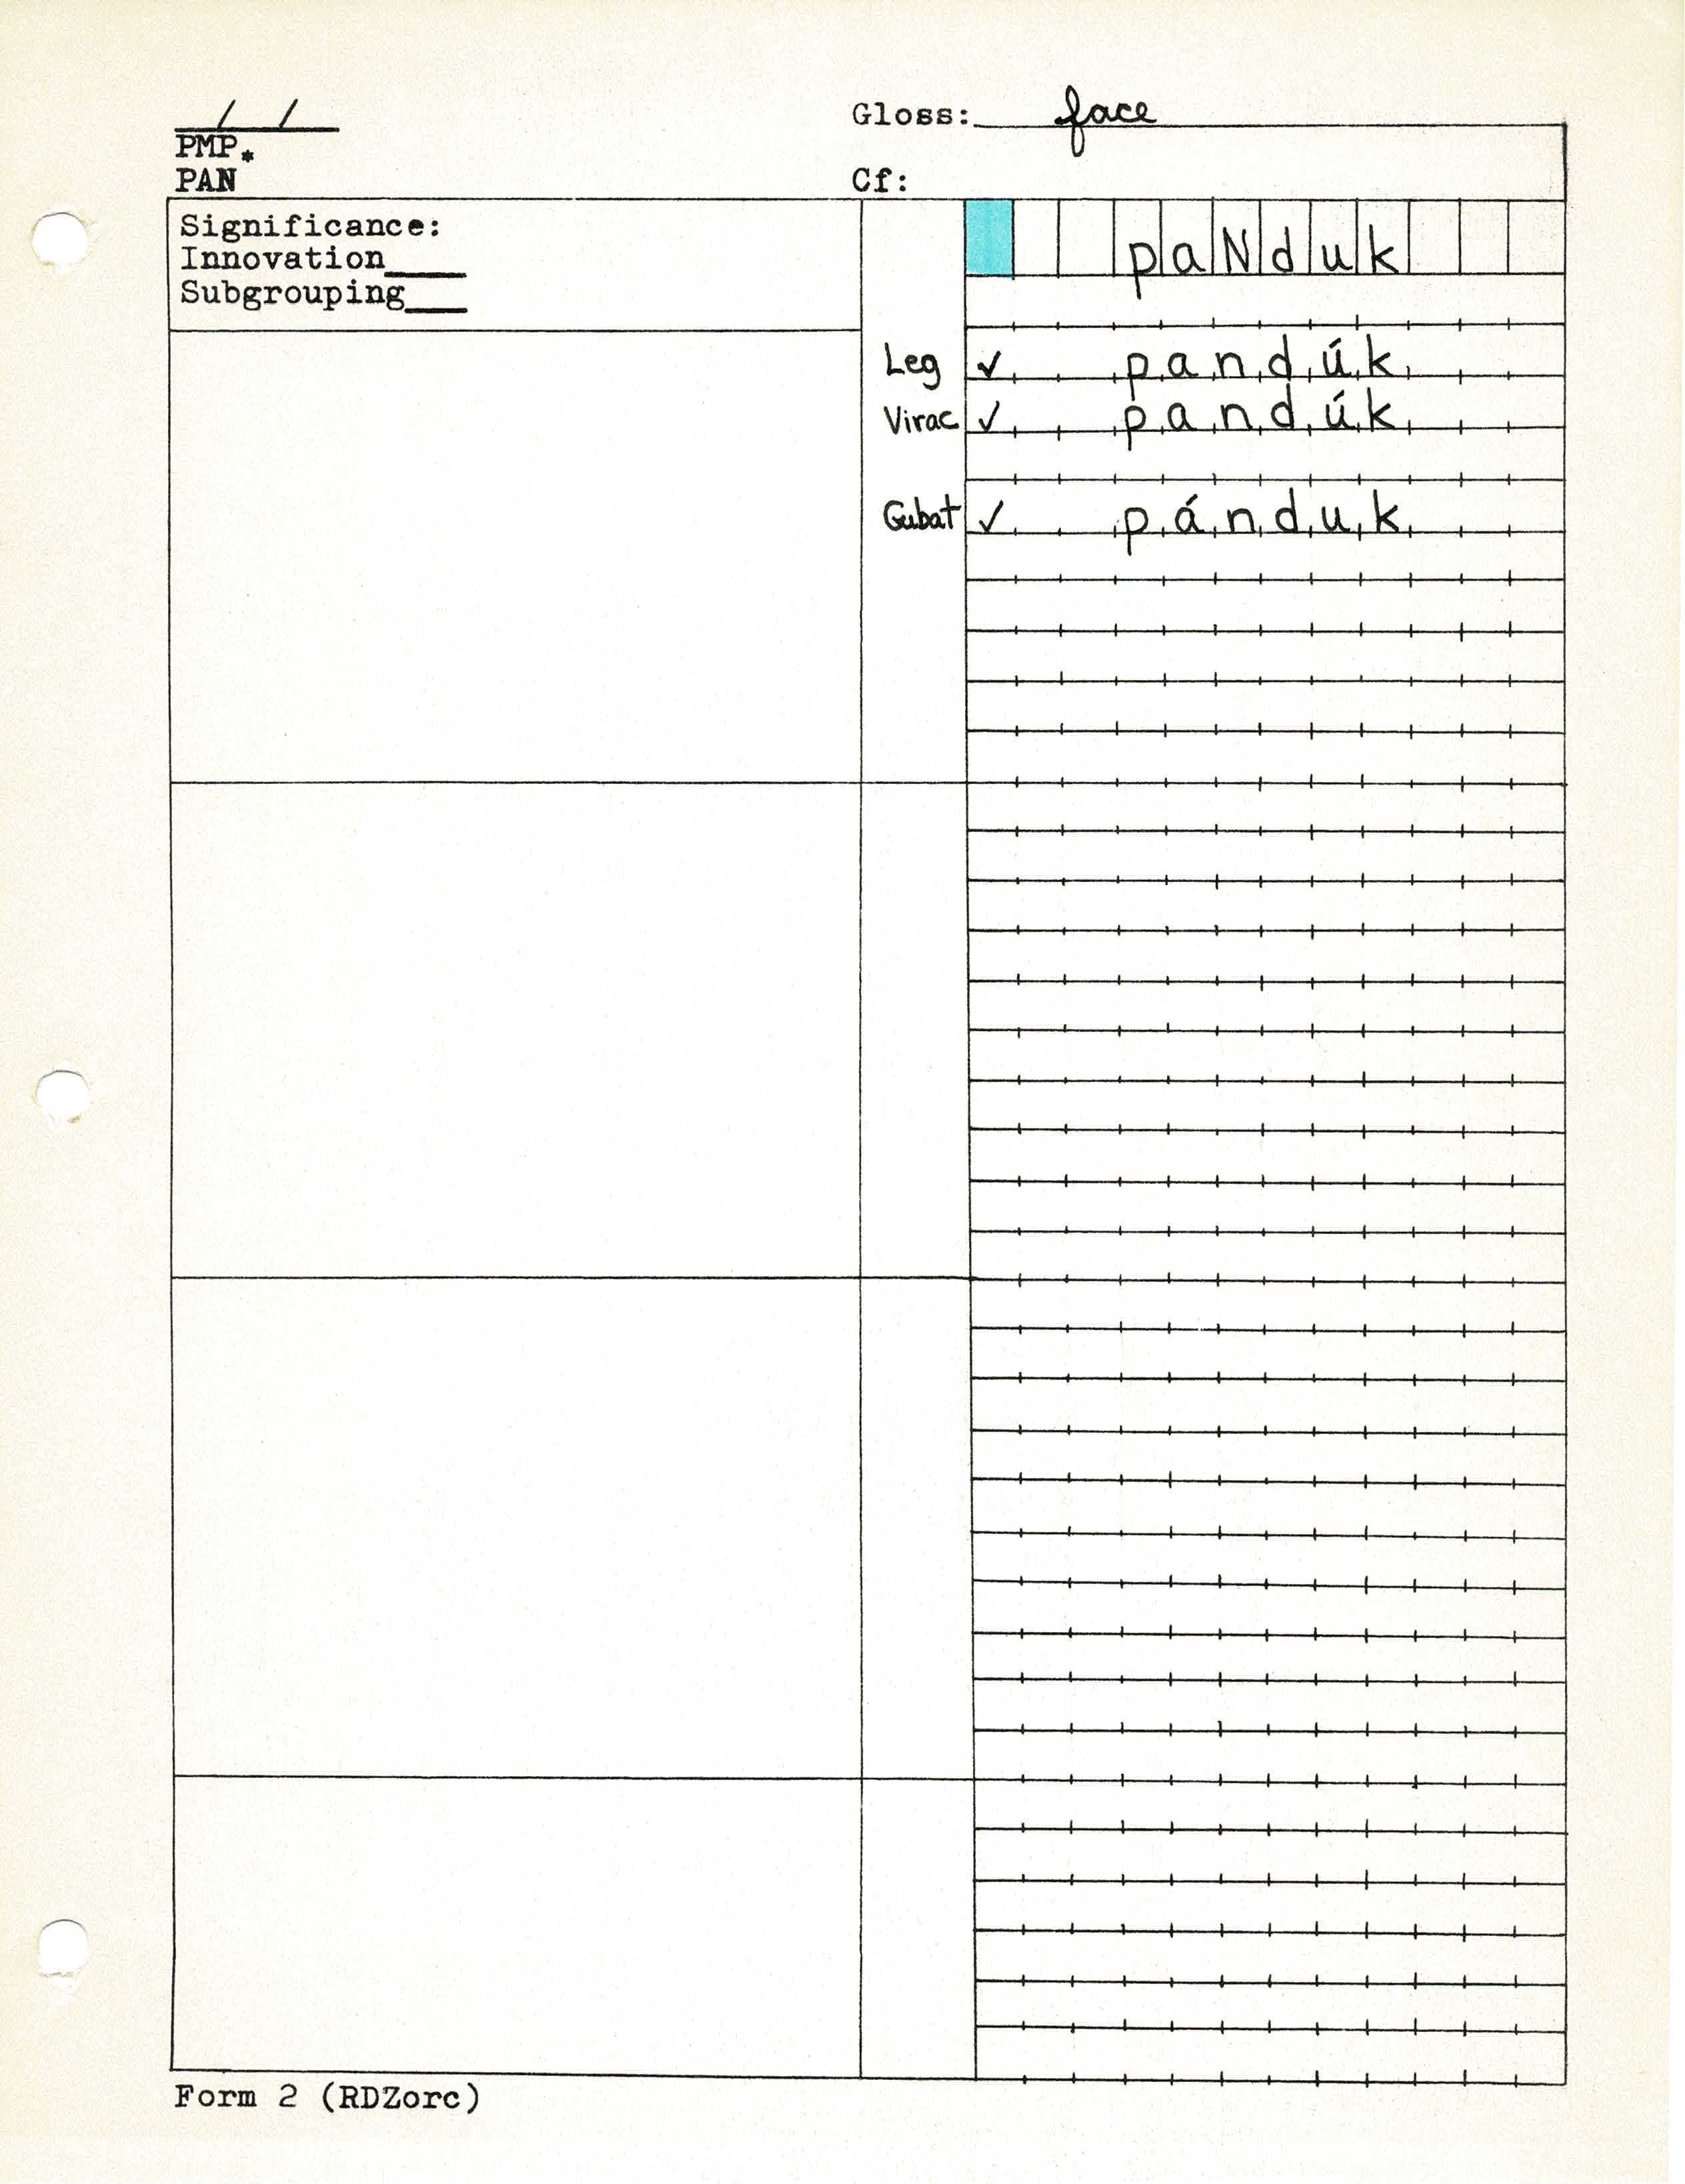 / /
Gloss: face
PMP*
PAN
Cf:
Significance:
Innovation____
Subgrouping___
paNduk
Leg ✓ pandúk
Virac ✓ pandúk
Gubat ✓ pánduk
Form 2 (RDZorc)